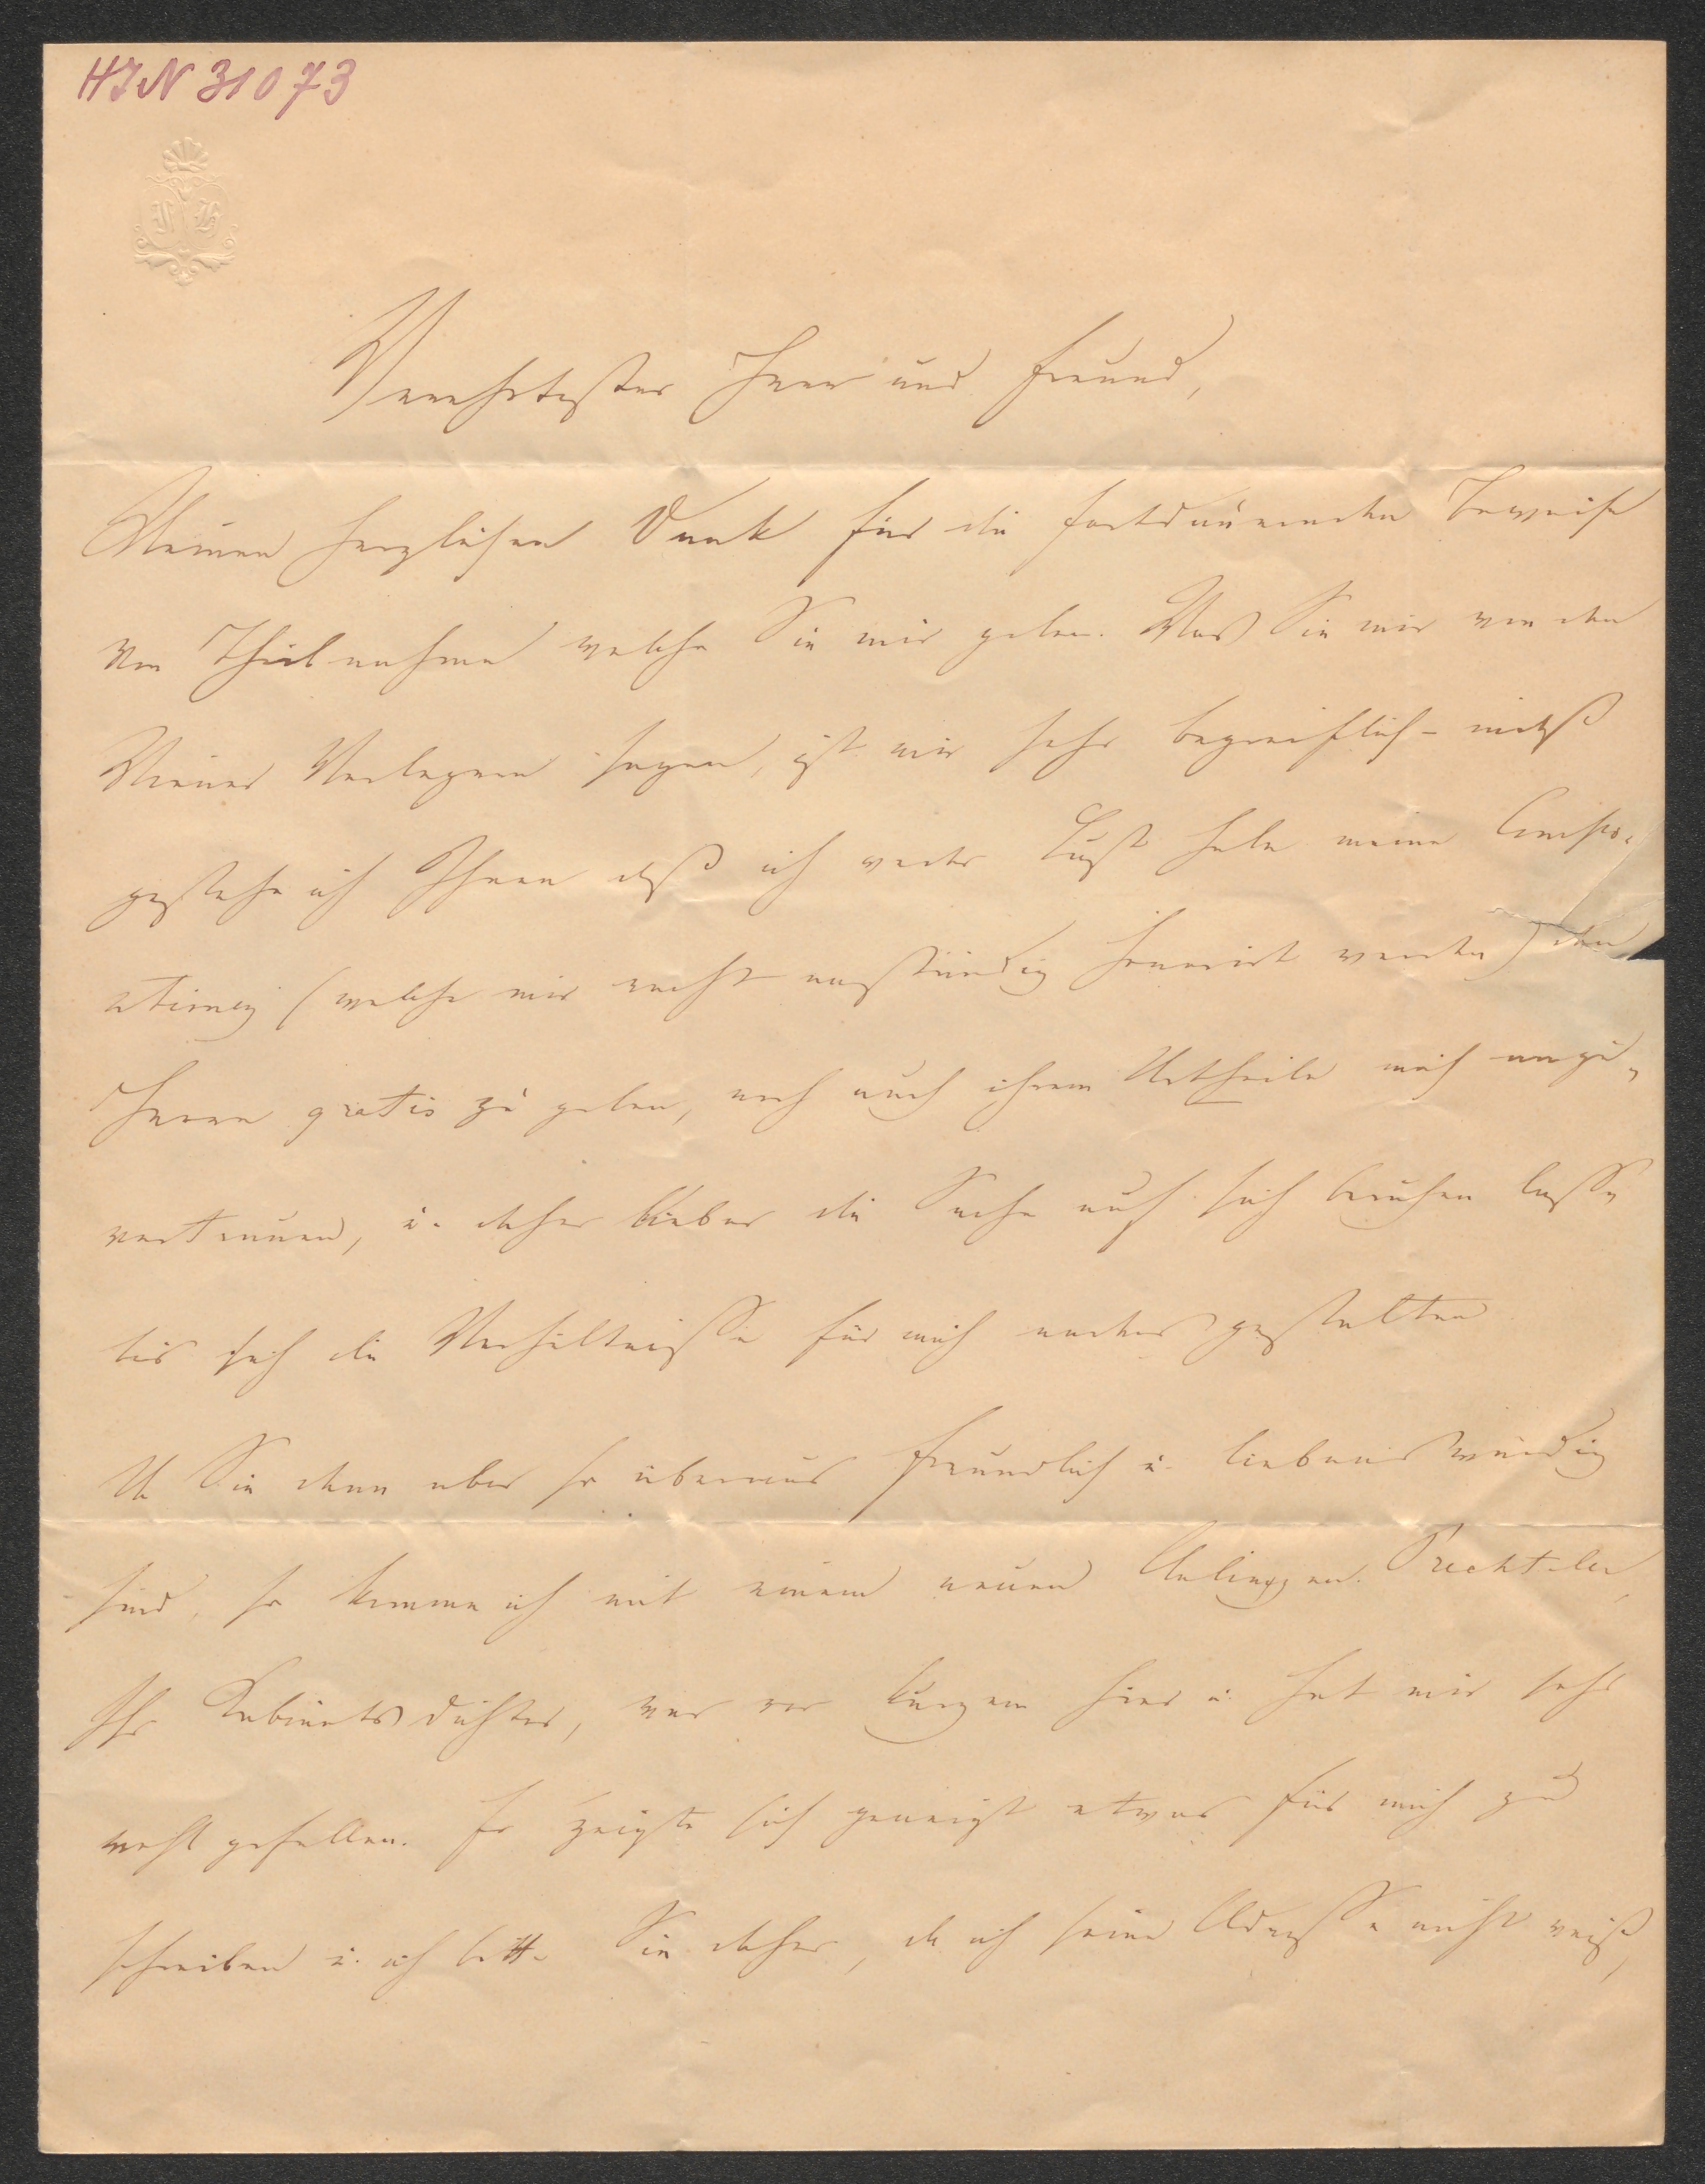 HIN 31073
Verehrtester Herr und Freund,
Meinen herzlichen Dank für die fortdauernden Beweise
von Theilnahme welche Sie mir geben. Was Sie mir von den
Wiener Verlegern sagen, ist mir sehr begreiflich –
gestehe ich Ihnen daß ich weder Lust habe meine Compo-
sitionen (welche mir recht anständig honorirt werden) den
Herren gratis zu geben, noch auch ihrem Urtheile mich anzu-
vertrauen, u. daher lieber die Sache auf sich beruhen lasse,
bis sich die Verhältnisse für mich anders gestalten
Da Sie denn aber so überaus freundlich u. liebenswürdig
sind, so komme ich mit einem neuen Anliegen. Prechtler,
Ihr Kabinetsdichter, war vor Kurzem hier u. hat mir sehr
wohl gefallen. Er zeigte sich geneigt etwas für mich zu
schreiben u. ich bitte Sie daher, da ich seine Adresse nicht weiß,